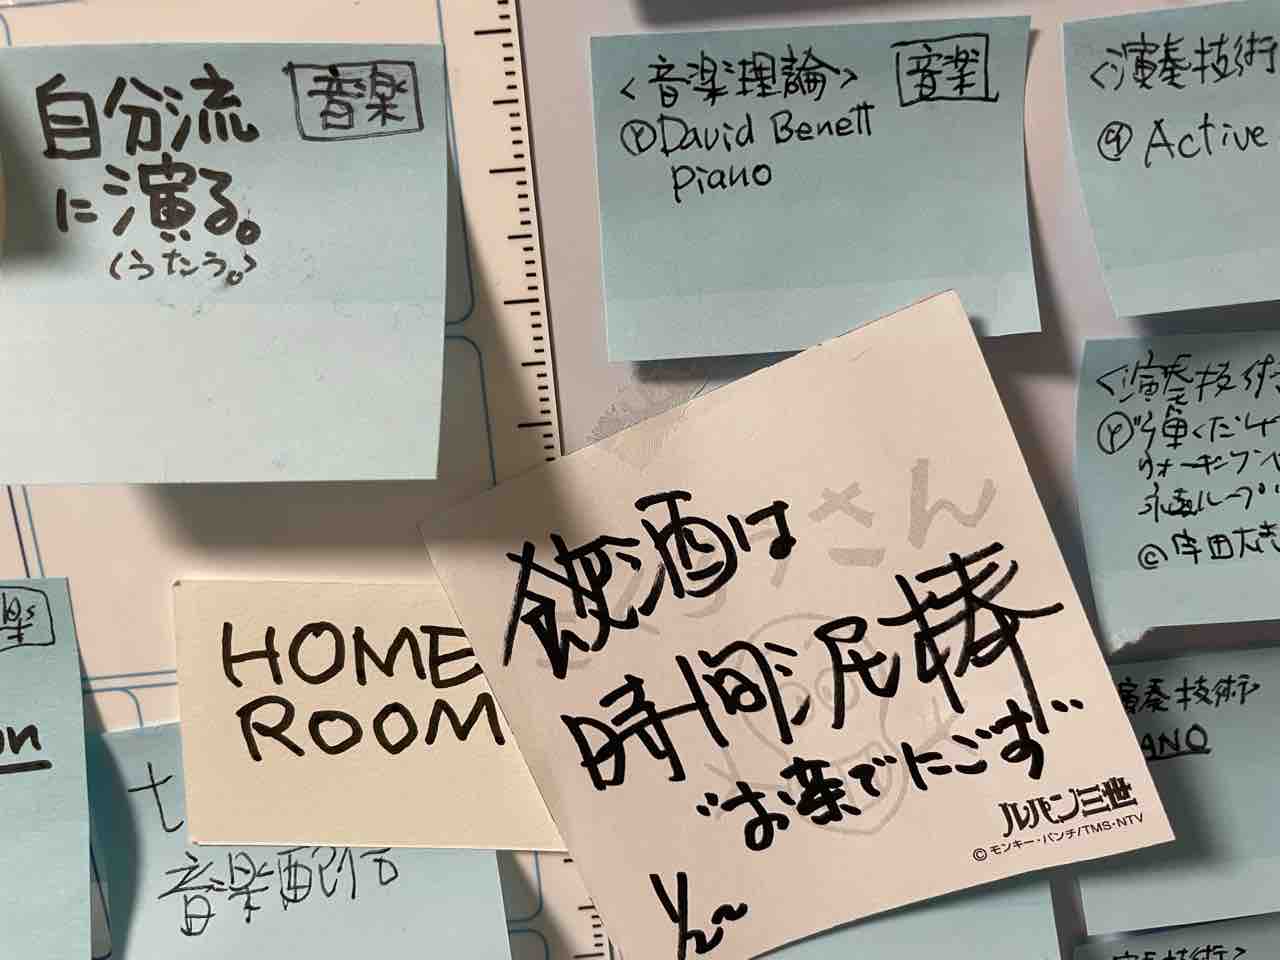 自分流
に演る。
(うたう。)
音楽
<音楽理論>
Ⓨ David Benett
piano
音楽
<演奏技術
Active
<演奏技術
Ⓨ 弾くだけ
ウォーキングベ
永遠ループ
HOME
ROOM
飲酒は
時間泥棒
"お茶でにごす"
さん
ルパン三世
© モンキー・パンチ/TMS・NTV
演奏技術
ANO
on
音楽配信
演奏技術>